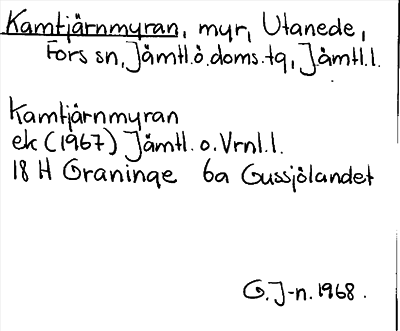 Kamtjärnmyran, myr, Utanede,
Fors sn, Jämtl.ö.doms.tg, Jämtl.l.
Kamtjärnmyran
ek (1967) Jämtl. o. Vrnl.l.
18 H Graninge 6a Gussjölandet
G.J-n. 1968.